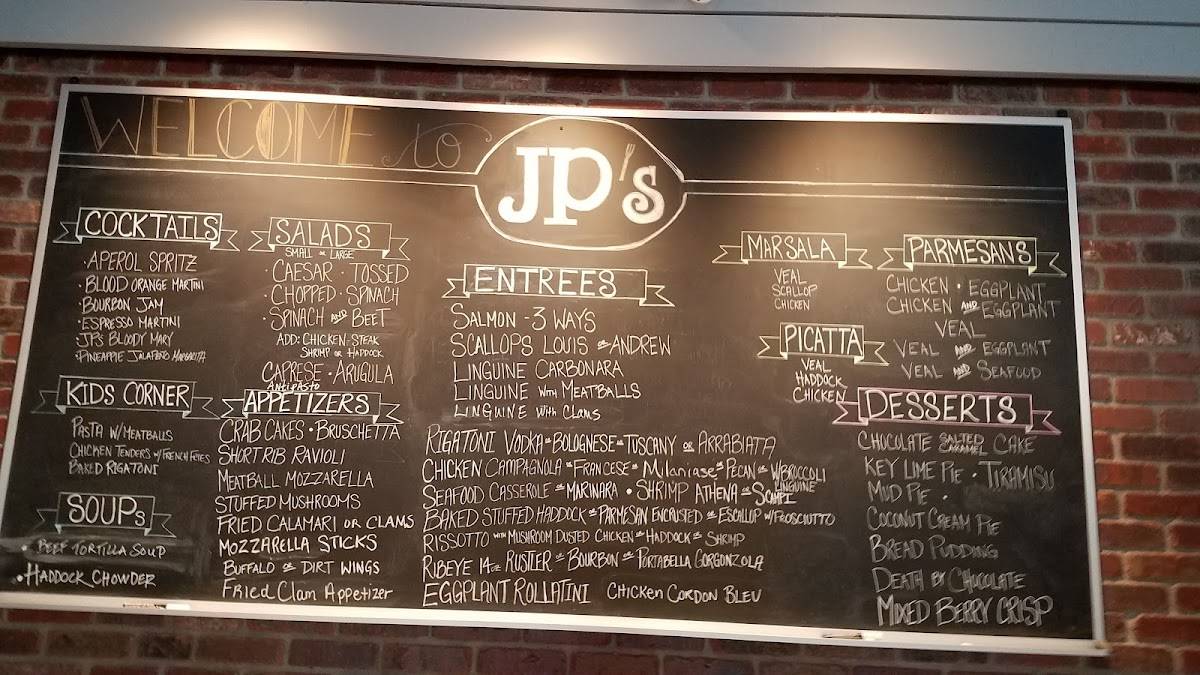 WELCOME to
JP's
COCKTAILS
· APEROL SPRITZ
· BLOOD ORANGE MARTINI
· BOURBON JAM
· ESPRESSO MARTINI
· JP'S BLOODY MARY
· PINEAPPLE JALAPEÑO MARGARITA
KIDS CORNER
PASTA W/MEATBALLS
CHICKEN TENDERS W/FRENCH FRIES
BAKED RIGATONI
SOUPS
· BEEF TORTILLA SOUP
· HADDOCK CHOWDER
SALADS
SMALL OR LARGE
· CAESAR · TOSSED
· CHOPPED · SPINACH
· SPINACH AND BEET
ADD: CHICKEN · STEAK
SHRIMP OR HADDOCK
CAPRESE · ARUGULA
ANTIPASTO
APPETIZERS
CRAB CAKES · BRUSCHETTA
SHORT RIB RAVIOLI
MEATBALL MOZZARELLA
STUFFED MUSHROOMS
FRIED CALAMARI OR CLAMS
MOZZARELLA STICKS
BUFFALO OR DIRT WINGS
FRIED CLAM APPETIZER
ENTREES
SALMON - 3 WAYS
SCALLOPS LOUIS OR ANDREW
LINGUINE CARBONARA
LINGUINE WITH MEATBALLS
LINGUINE WITH CLAMS
RIGATONI VODKA OR BOLOGNESE OR TUSCANY OR ARRABIATA
CHICKEN CAMPAGNOLA OR FRANCESE OR MILANIASE OR PECAN OR W/BROCCOLI LINGUINE
SEAFOOD CASSEROLE OR MARINARA · SHRIMP ATHENA OR SCAMPI
BAKED STUFFED HADDOCK OR PARMESAN ENCRUSTED OR ESCALLOP W/PROSCIUTTO
RISSOTTO WITH MUSHROOM DUSTED CHICKEN OR HADDOCK OR SHRIMP
RIBEYE 14oz RUSTLER OR BOURBON OR PORTABELLA GORGONZOLA
EGGPLANT ROLLATINI CHICKEN CORDON BLEU
MARSALA
VEAL
SCALLOP
CHICKEN
PICATTA
VEAL
HADDOCK
CHICKEN
PARMESANS
CHICKEN · EGGPLANT
CHICKEN AND EGGPLANT
VEAL
VEAL AND EGGPLANT
VEAL AND SEAFOOD
DESSERTS
CHOCOLATE SALTED CARAMEL CAKE
KEY LIME PIE · TIRAMISU
MUD PIE ·
COCONUT CREAM PIE
BREAD PUDDING
DEATH BY CHOCOLATE
MIXED BERRY CRISP